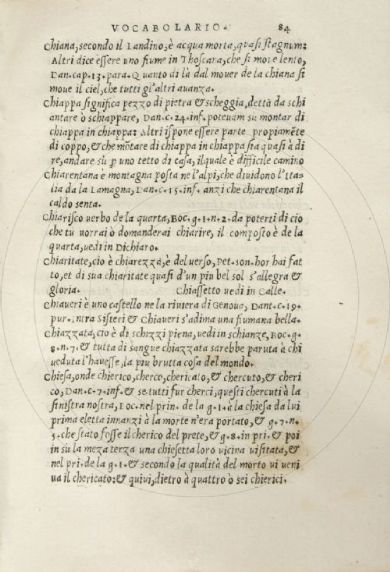 VOCABOLARIO. 84
Chiana, secondo il Landino, è acqua morta, quasi stagnum:
Altri dice essere uno fiume in Thoscara, che si moue lento,
Dan. cap. 13. para. Quanto di là dal mouer de la chiana si
moue il ciel, che tutti gl'altri auanza.
Chiappa significa pezzo di pietra & scheggia, detta da schi
antare ò schiappare, Dan. C. 24. inf. poteuam su montar di
chiappa in chiappa: Altri ispone essere parte propiamēte
di coppo, & che mōtare di chiappa in chiappa sia quasi à di
re, andare su p uno tetto di casa, il quale è difficile camino
Chiarentana è montagna posta ne l'alpi, che diuidono l'Ita
lia da la Lamagna, Dan. C. 15. inf. anzi che chiarentana il
caldo senta.
Chiarisco uerbo de la quarta, Boc. g. 1. n. 2. da poterti di cio
che tu uorrai ò domanderai chiarire, il composto è de la
quarta, uedi in Dichiaro.
Chiaritate, cio è chiarezza, è del uerso, Pet. son. hor hai fat
to, et di sua chiaritate quasi d'un piu bel sol s'allegra &
gloria. Chiassetto uedi in Calle.
Chiaueri è uno castello ne la riuiera di Genoua, Dant. C. 19.
pur. Intra Sisteri & Chiaueri s'adima una fiumana bella.
Chiazzata, cio è di schizzi piena, uedi in schianze, Boc. g.
8. n. 7. & tutta di sangue chiazzata sarebbe paruta à chi
ueduta l'hauesse, la piu brutta cosa del mondo.
Chiesa, onde chierico, cherco, chericato, & chercuto, & cheri
co, Dan. C. 7. inf. & se tutti fur cherci, questi chercuti à la
sinistra nostra, Boc. nel prin. de la g. 1. à la chiesa da lui
prima eletta innanzi à la morte n'era portato, & g. 7. n.
5. che stato fosse il cherico del prete, & g. 8. in pri. & poi
in su la meza terza una chiesetta loro vicina uisitata, &
nel pri. de la g. 1. & secondo la qualità del morto ui ueni
ua il chericato: & quiui, dietro à quattro ò sei chierici.